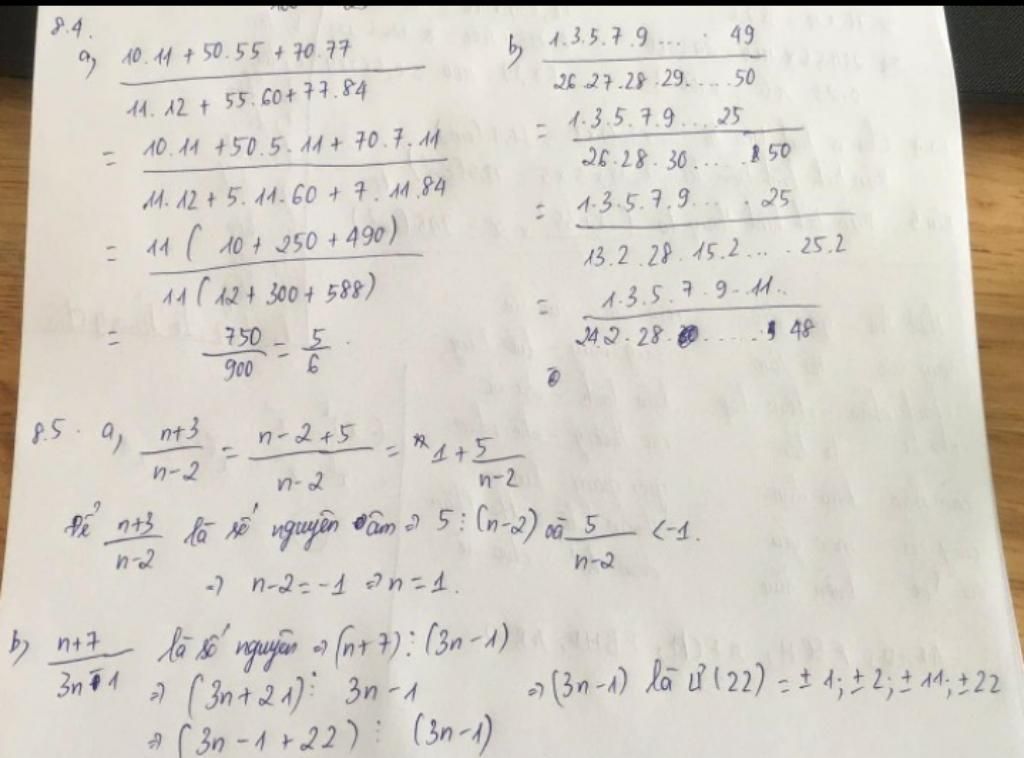 8.4.
a, (10.11 + 50.55 + 70.77)/(11.12 + 55.60 + 77.84)
= (10.11 + 50.5.11 + 70.7.11)/(11.12 + 5.11.60 + 7.11.84)
= 11(10 + 250 + 490)/11(12 + 300 + 588)
= 750/900 = 5/6
b, (1.3.5.7.9... . 49)/(26.27.28.29.... 50)
= (1.3.5.7.9...25)/(26.28.30..... 50)
= (1.3.5.7.9... . 25)/(13.2.28.15.2.... 25.2)
= (1.3.5.7.9.11..)/(242.28. ...... 48)
8.5. a, (n+3)/(n-2) = (n-2+5)/(n-2) = 1 + 5/(n-2)
Để (n+3)/(n-2) là số nguyên âm ⇒ 5 ⋮ (n-2) và 5/(n-2) < -1.
⇒ n-2 = -1 ⇒ n = 1.
b) (n+7)/(3n-1) là số nguyên ⇒ (n+7) ⋮ (3n-1)
⇒ (3n+21) ⋮ 3n-1
⇒ (3n-1+22) ⋮ (3n-1)
⇒ (3n-1) là Ư(22) = ±1; ±2; ±11; ±22